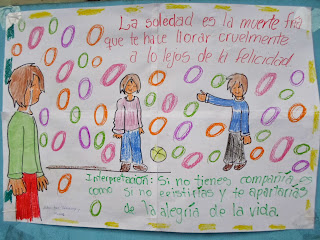 La soledad es la muerte fria
que te hace llorar cruelmente
a lo lejos de la felicidad
Interpretación: Si no tienes compañía es
como si no existirias y te apartarias
de la alegria de la vida.